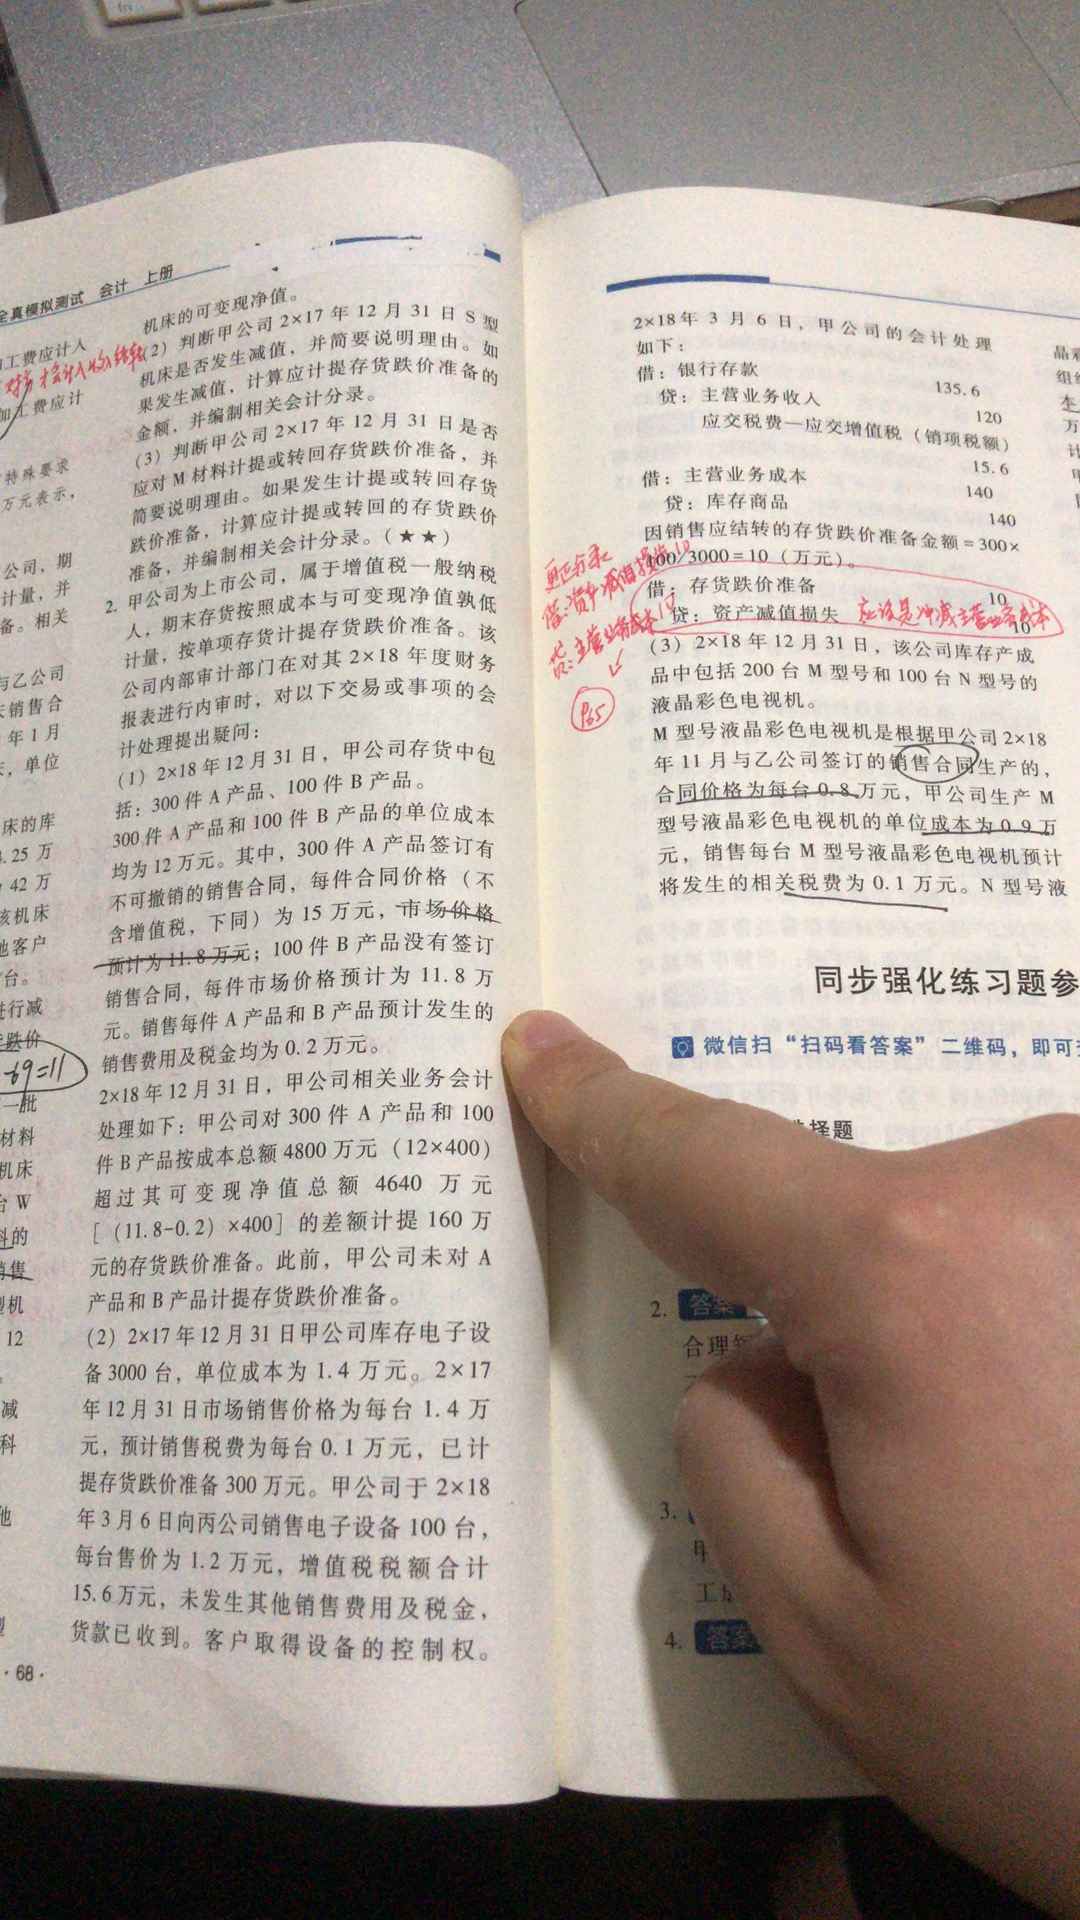 全真模拟测试 会计 上册
加工费应计入
加工费应计
特殊要求
万元表示,
公司, 期
计量, 并
备。相关
与乙公司
销售合
年1月
单位
床的库
.25万
42万
该机床
他客户
台。
进行减
跌价
-69=11
一批
材料
机床
台W
料的
销售
型机
12
减
科
他
型
· 68 ·
机床的可变现净值。
(2) 判断甲公司2×17年12月31日S型
机床是否发生减值, 并简要说明理由。如
果发生减值, 计算应计提存货跌价准备的
金额, 并编制相关会计分录。
(3) 判断甲公司2×17年12月31日是否
应对M材料计提或转回存货跌价准备, 并
简要说明理由。如果发生计提或转回存货
跌价准备, 计算应计提或转回的存货跌价
准备, 并编制相关会计分录。(★★)
2. 甲公司为上市公司, 属于增值税一般纳税
人, 期末存货按照成本与可变现净值孰低
计量, 按单项存货计提存货跌价准备。该
公司内部审计部门在对其2×18年度财务
报表进行内审时, 对以下交易或事项的会
计处理提出疑问:
(1) 2×18年12月31日, 甲公司存货中包
括: 300件A产品、100件B产品。
300件A产品和100件B产品的单位成本
均为12万元。其中, 300件A产品签订有
不可撤销的销售合同, 每件合同价格(不
含增值税, 下同)为15万元, 市场价格
预计为11.8万元; 100件B产品没有签订
销售合同, 每件市场价格预计为11.8万
元。销售每件A产品和B产品预计发生的
销售费用及税金均为0.2万元。
2×18年12月31日, 甲公司相关业务会计
处理如下: 甲公司对300件A产品和100
件B产品按成本总额4800万元(12×400)
超过其可变现净值总额4640万元
[(11.8-0.2)×400]的差额计提160万
元的存货跌价准备。此前, 甲公司未对A
产品和B产品计提存货跌价准备。
(2) 2×17年12月31日甲公司库存电子设
备3000台, 单位成本为1.4万元。2×17
年12月31日市场销售价格为每台1.4万
元, 预计销售税费为每台0.1万元, 已计
提存货跌价准备300万元。甲公司于2×18
年3月6日向丙公司销售电子设备100台,
每台售价为1.2万元, 增值税税额合计
15.6万元, 未发生其他销售费用及税金,
货款已收到。客户取得设备的控制权。
2×18年3月6日, 甲公司的会计处理
如下:
借: 银行存款 135.6
贷: 主营业务收入 120
应交税费—应交增值税(销项税额)
15.6
借: 主营业务成本 140
贷: 库存商品 140
因销售应结转的存货跌价准备金额=300×
100/3000=10(万元)。
借: 存货跌价准备 10
贷: 资产减值损失 10
应该是冲减主营业务成本
更正分录
借: 资产减值损失10
贷: 主营业务成本10
P65
(3) 2×18年12月31日, 该公司库存产成
品中包括200台M型号和100台N型号的
液晶彩色电视机。
M型号液晶彩色电视机是根据甲公司2×18
年11月与乙公司签订的销售合同生产的,
合同价格为每台0.8万元, 甲公司生产M
型号液晶彩色电视机的单位成本为0.9万
元, 销售每台M型号液晶彩色电视机预计
将发生的相关税费为0.1万元。N型号液
晶彩
组织
万
计
同步强化练习题参
微信扫“扫码看答案”二维码, 即可
择题
2. 答案
合理
3.
4. 答案